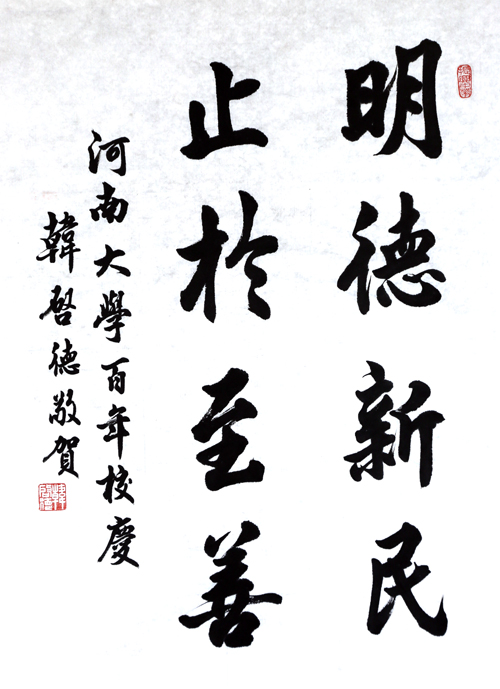 明德新民
止於至善
河南大學百年校慶
韓啓德敬賀